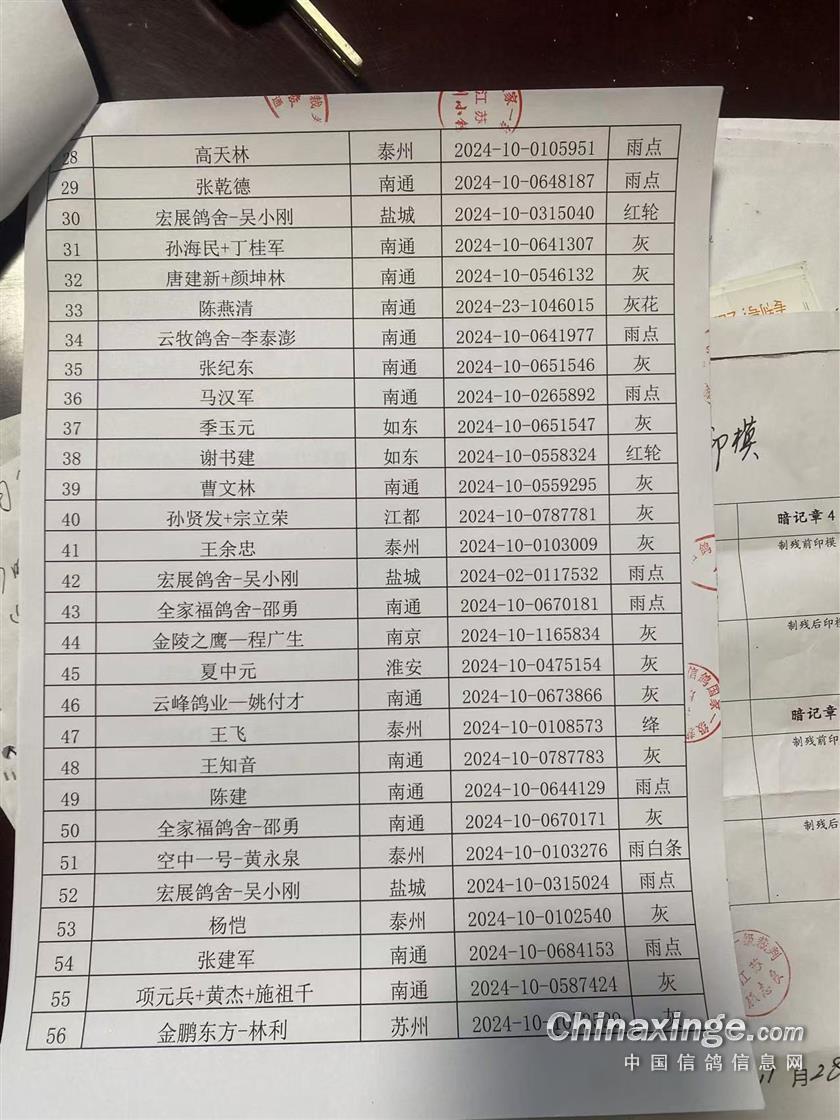 28 高天林 泰州 2024-10-0105951 雨点
29 张乾德 南通 2024-10-0648187 雨点
30 宏展鸽舍-吴小刚 盐城 2024-10-0315040 红轮
31 孙海民+丁桂军 南通 2024-10-0641307 灰
32 唐建新+颜坤林 南通 2024-10-0546132 灰
33 陈燕清 南通 2024-23-1046015 灰花
34 云牧鸽舍-李泰澎 南通 2024-10-0641977 雨点
35 张纪东 南通 2024-10-0651546 灰
36 马汉军 南通 2024-10-0265892 雨点
37 季玉元 如东 2024-10-0651547 灰
38 谢书建 如东 2024-10-0558324 红轮
39 曹文林 南通 2024-10-0559295 灰
40 孙贤发+宗立荣 江都 2024-10-0787781 灰
41 王余忠 泰州 2024-10-0103009 灰
42 宏展鸽舍-吴小刚 盐城 2024-02-0117532 雨点
43 全家福鸽舍-邵勇 南通 2024-10-0670181 雨点
44 金陵之鹰—程广生 南京 2024-10-1165834 灰
45 夏中元 淮安 2024-10-0475154 灰
46 云峰鸽业—姚付才 南通 2024-10-0673866 灰
47 王飞 泰州 2024-10-0108573 绛
48 王知音 南通 2024-10-0787783 灰
49 陈建 南通 2024-10-0644129 雨点
50 全家福鸽舍-邵勇 南通 2024-10-0670171 灰
51 空中一号-黄永泉 泰州 2024-10-0103276 雨白条
52 宏展鸽舍-吴小刚 盐城 2024-10-0315024 雨点
53 杨恺 泰州 2024-10-0102540 灰
54 张建军 南通 2024-10-0684153 雨点
55 项元兵+黄杰+施祖千 南通 2024-10-0587424 灰
56 金鹏东方-林利 苏州
印模
暗记章4
制残前印模
制残后印模
暗记章
制残前印
制残后
信鸽国家一级裁
一级裁判
江苏
11月28
Chinaxinge.com
中国信鸽信息网